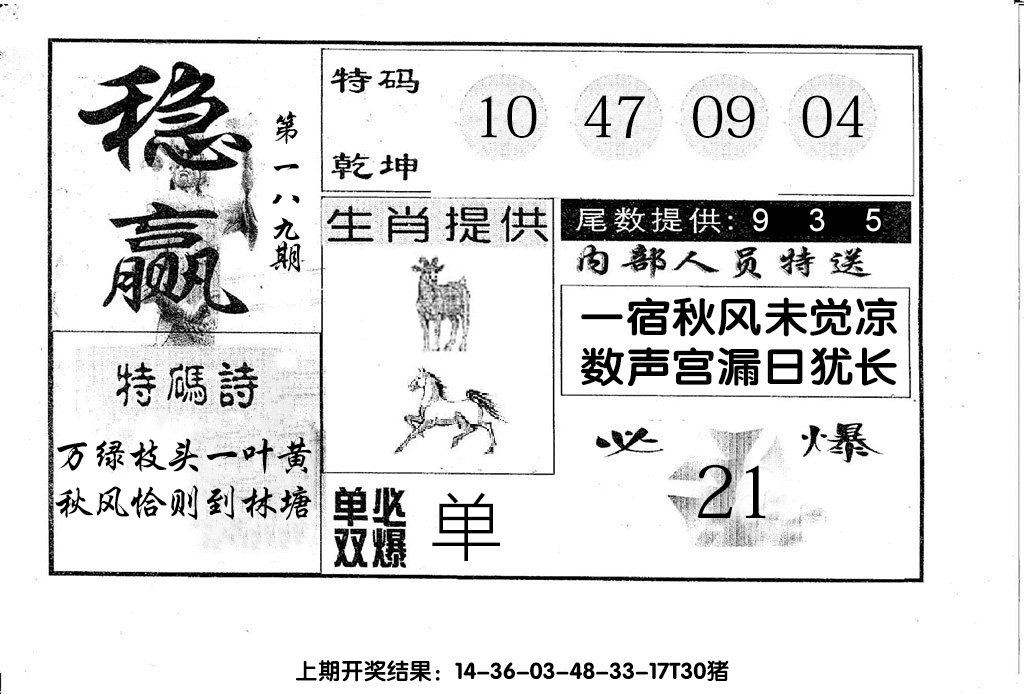 稳赢
第一八九期
特码
乾坤
10 47 09 04
生肖提供
尾数提供: 9 3 5
内部人员特送
一宿秋风未觉凉
数声宫漏日犹长
特碼詩
万绿枝头一叶黄
秋风恰则到林塘
单双
必爆
单
必爆
21
上期开奖结果：14-36-03-48-33-17T30猪